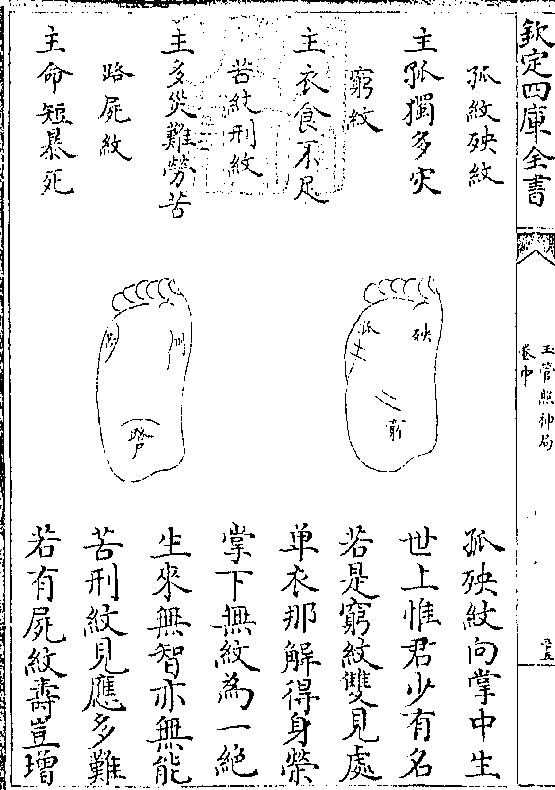 欽定四庫全書
玉管照神局
卷中
孤紋殃紋
主孤獨多灾
窮紋
主衣食不足
苦紋刑紋
主多災難勞苦
路屍紋
主命短暴死
殃
孤
窮
刑
苦
路屍
孤殃紋向掌中生
世上惟君少有名
若是窮紋雙見處
单衣那解得身榮
掌下無紋為一絶
生來無智亦無能
苦刑紋見應多難
若有屍紋壽豈增